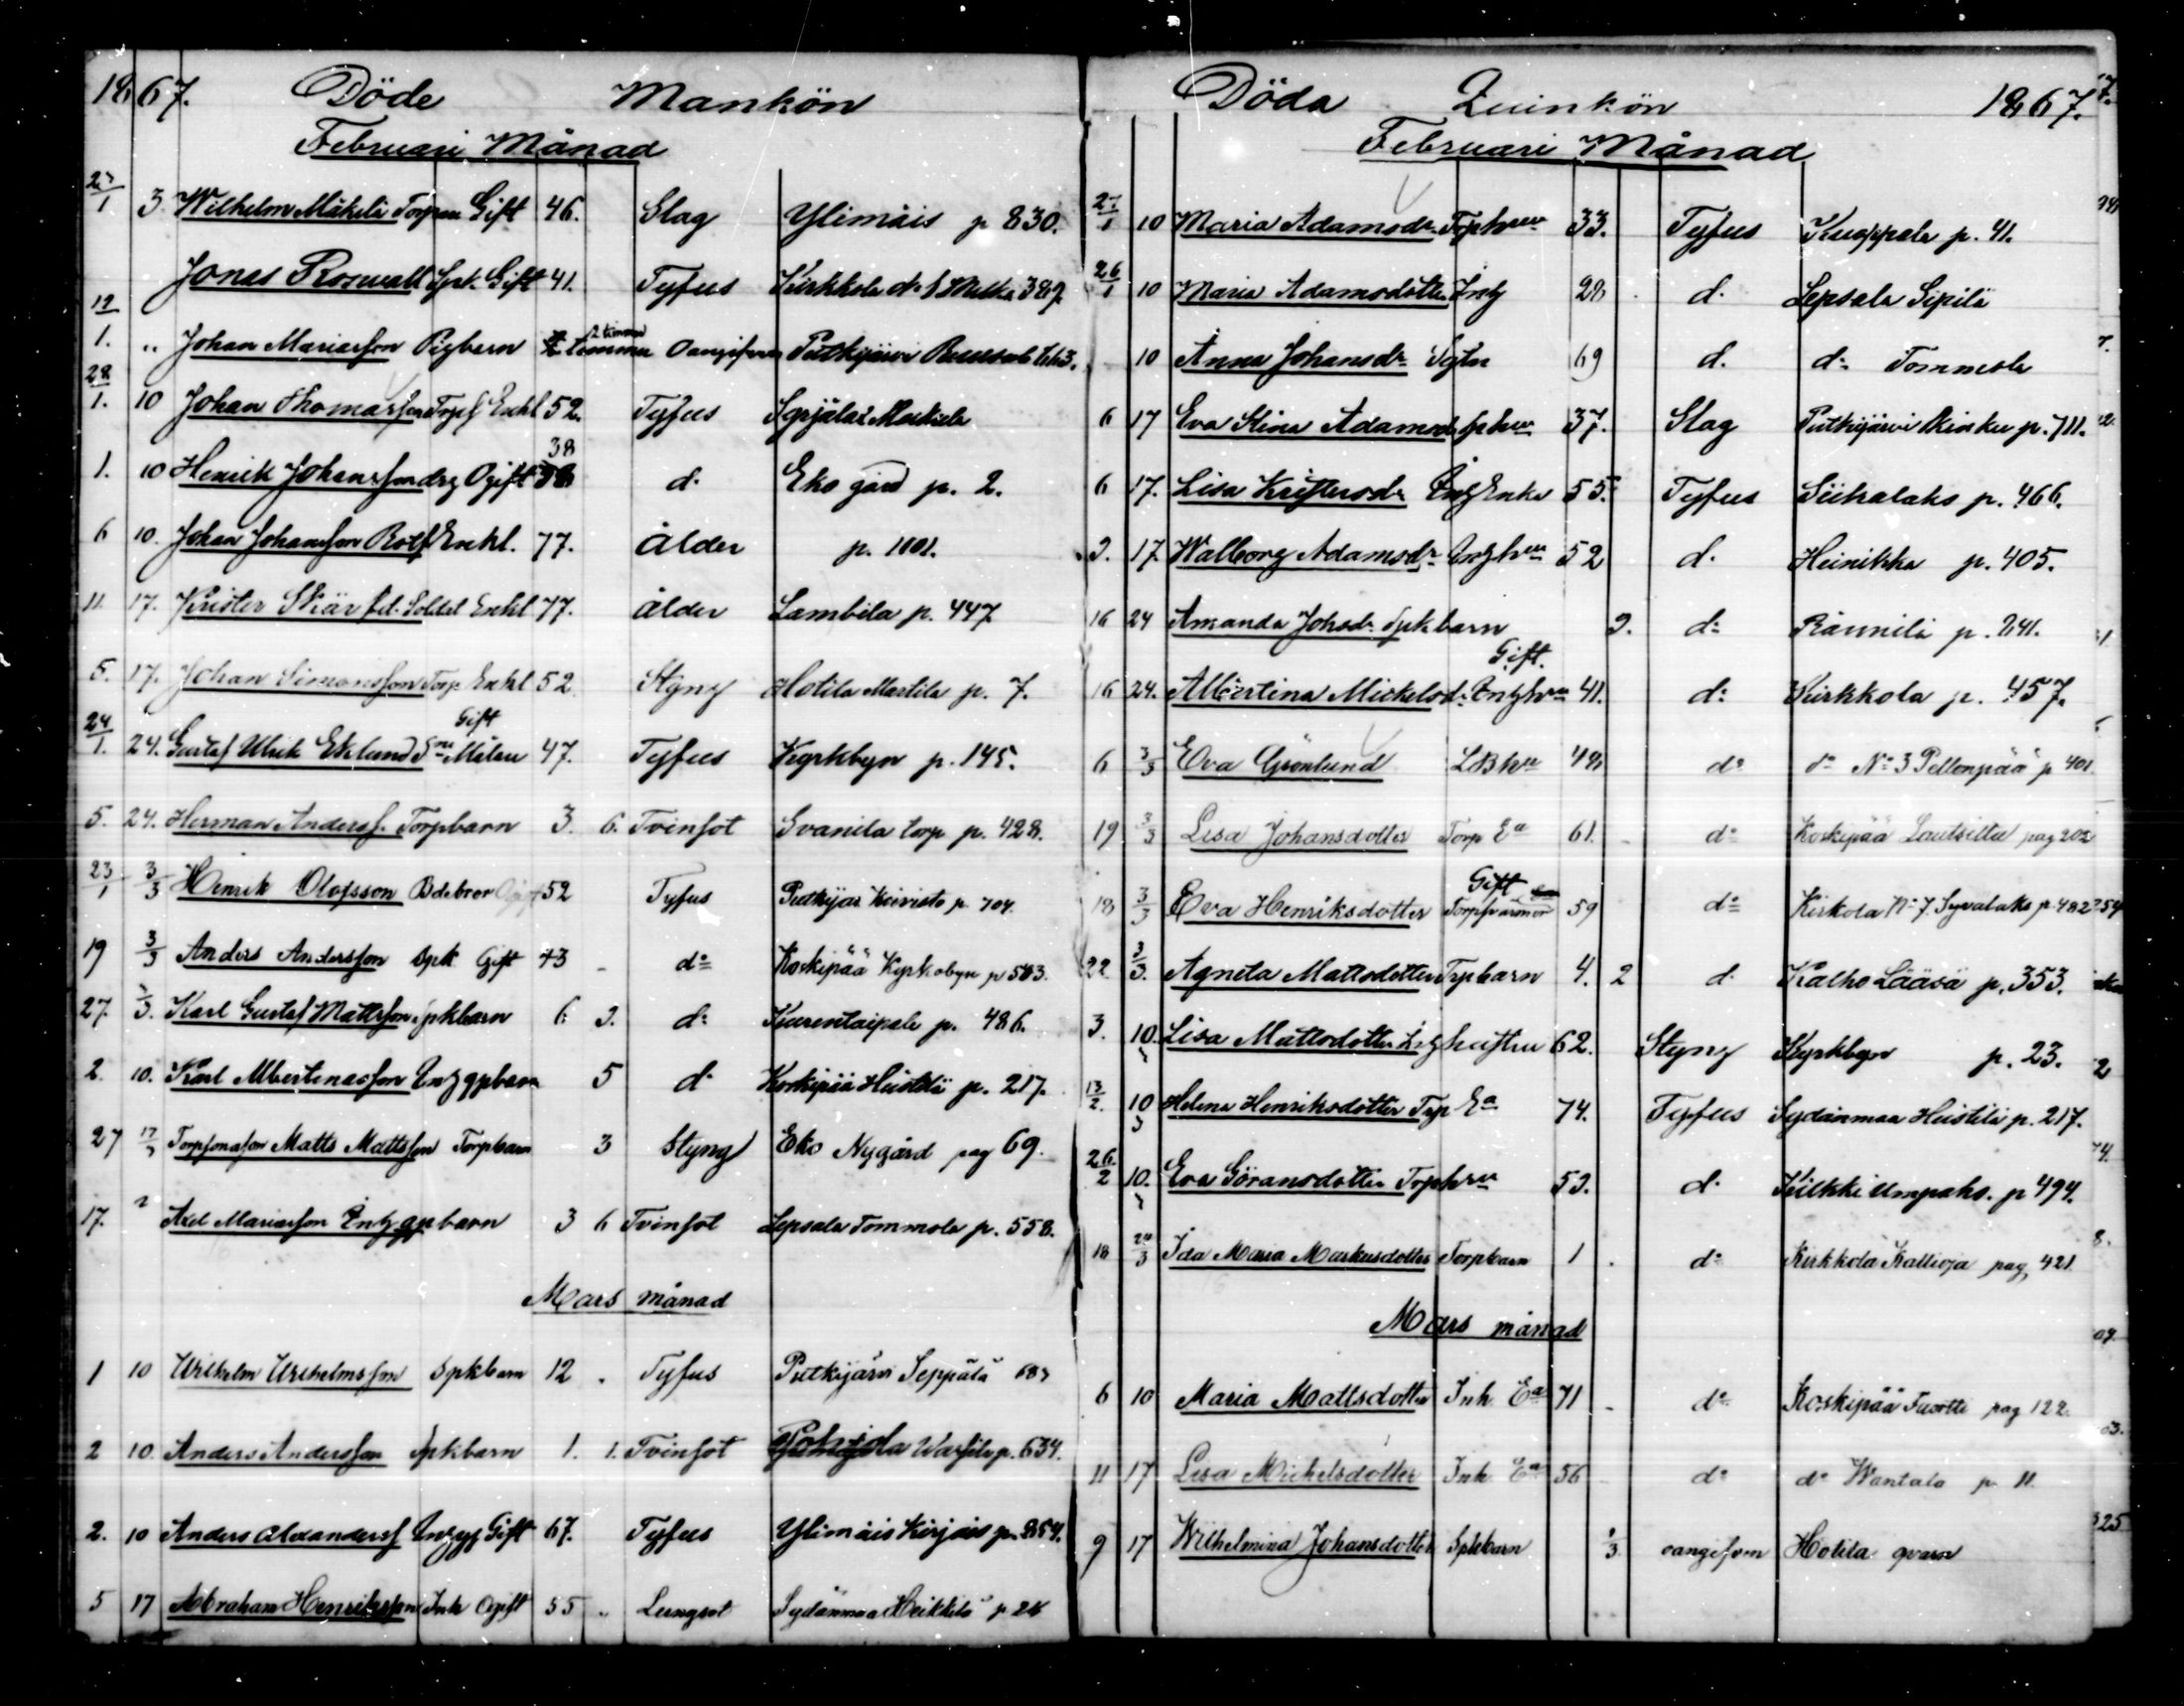 1867. Döde Mankön
Februari Månad
27/1 3 Wilhelm Mäkelä Torpare Gift 46. Slag Ylimäis p 830.
Jonas Roswall Spk. Gift 41. Tyfus Kirkkola 389.
12/1. " Johan Mariasson Pigbarn 2 timmar oangifven Putkijärvi
28/1. 10 Johan Thomasson Enkl 52. Tyfus
1. 10 Henrik Johansson drg Ogift 38 38 d. Eko gård p. 2.
6 10. Johan Johansson Rolf Enkl. 77. Ålder p. 1001.
11. 17. Krister Skär fd. Soldat Enkl 77. ålder Lambila p. 447
5. 17. Johan Simonsson Torp. Enkl 52. Styng Hotila Martila p. 7.
24/1. 24. Gustaf Ulrik Eklund Målare Gift 47. Tyfus Kyrkbyn p. 145.
5. 24. Herman Andersf. Torpbarn 3. 6. Tvinsot Svanila torp p. 428.
23/1 3/3 Henrik Olofsson Bdebror Ogift 52 Tyfus Putkijär Koivisto p. 704.
19 3/3 Anders Andersson Spk Gift 43 - do Koskipää Kyrkobyn p 583.
27. 3/3. Karl Gustaf Mattsson Spkbarn 6. 9. do Kurentaipale p. 486.
2. 10. Karl Albertinasson 5 d. Koskipää Heistilä p. 217.
27 17/3 Torpsonason Matts Mattsson Torpbarn 3 Styng Eko Nygård pag 69.
17. " Axel Mariasson barn 3 6 Tvinsot Lepsala Tommola p. 558.
Mars månad
1 10 Wilhelm Wilhelmsson Spkbarn 12 . Tyfus Putkijärvi Seppälä 683
2 10. Anders Andersson Spkbarn 1. 1. Tvinsot Pohjola p. 634.
2. 10 Anders Alexandersf Gift 67. Tyfus Ylimäis Kirjais p. 854.
5 17 Abraham Henriksson Inh Ogift 55 " Lungsot Sydänmaa Heikkilä p 26
Döda Quinkön 1867.
Februari Månad
27/1 10 Maria Adamsdr. Torphru 33. Tyfus Kuoppala p. 41.
26/1 10 Maria Adamsdotter Inh 28 . d. Lepsala Sipilä
10 Anna Johansdr 69 d. do Tommola
6 17 Eva Stina Adamsd. Sphru 37. Slag Putkijärvi p. 711.
6 17. Lisa Kristersdr Enka 55. Tyfus Siikalaks p. 466.
9. 17. Walborg Adamsdr Inhhru 52 d. Heinikka p. 405.
16 24 Amanda Johsdr Spkbarn 9. do Räunilä p. 241.
16 24. Albertina Mickelsd. Inhhru Gift. 41. do Kirkkola p. 457.
6 3/3 Eva Grönlund 48 do do No 3 Pellonpää p 401
19 3/3 Lisa Johansdotter Torp Ea 61. - do Koskipää Lautsilla pag 202
18 3/3 Eva Henriksdotter Torpfarmor Gift 59 do Kirkola No 7. Syvälaks p. 482
22 3/3. Agneta Mattsdotter Trpbarn 4. 2 d. Kalho Lääsä p. 353.
3. 10. Lisa Mattsdotter hustru 62. Styng Kyrkbyn p. 23.
13/2. 10 Helena Henriksdotter Trp Ea 74. Tyfus Sydänmaa Heistilä p. 217.
26/2 10. Eva Göransdotter Trphru 53. d. Kilkki p 494.
18 24/3 Ida Maria Markusdotter Torpbarn 1 . do Kirkkola Kallioja pag 421
Mars månad
6 10 Maria Mattsdotter Inh. Ea 71 - do Koskipää Tuotti pag 122.
11 17 Lisa Michelsdotter Inh Ea 56 - do do Wantala p. 11.
9 17 Wilhelmina Johansdotter Spkbarn oangifven Hotila qvarn